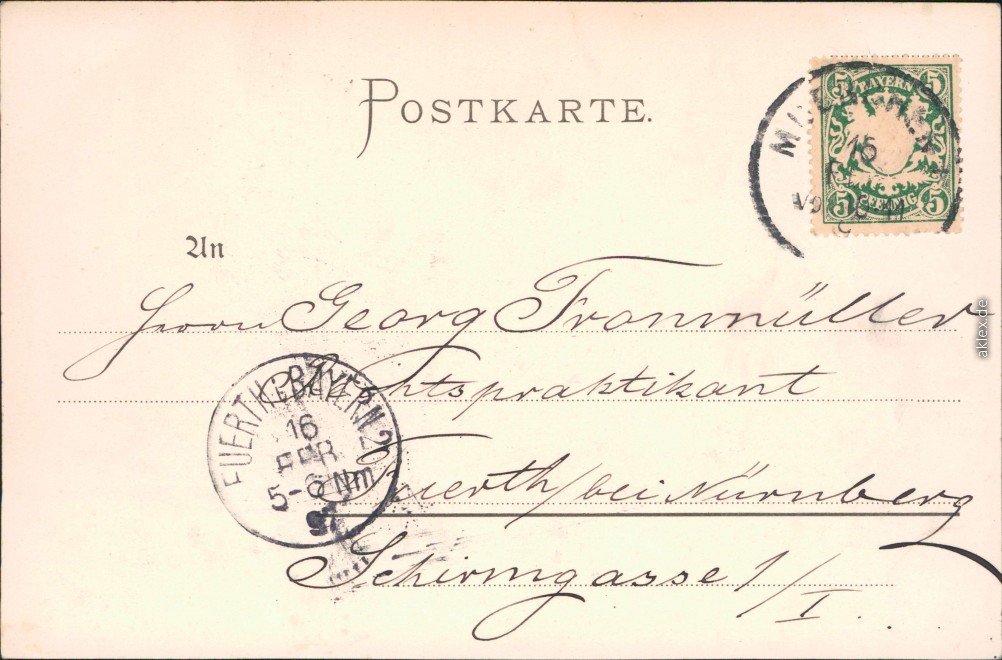 POSTKARTE.
5 BAYERN 5
16
5 5
An
Herrn Georg Fronmüller
Rechtspraktikant
Fuerth/bei Nürnberg
Schirmgasse 1/I.
FUERTH.BAYERN 2
16
FEB
5-6 Nm
97
aklex.de